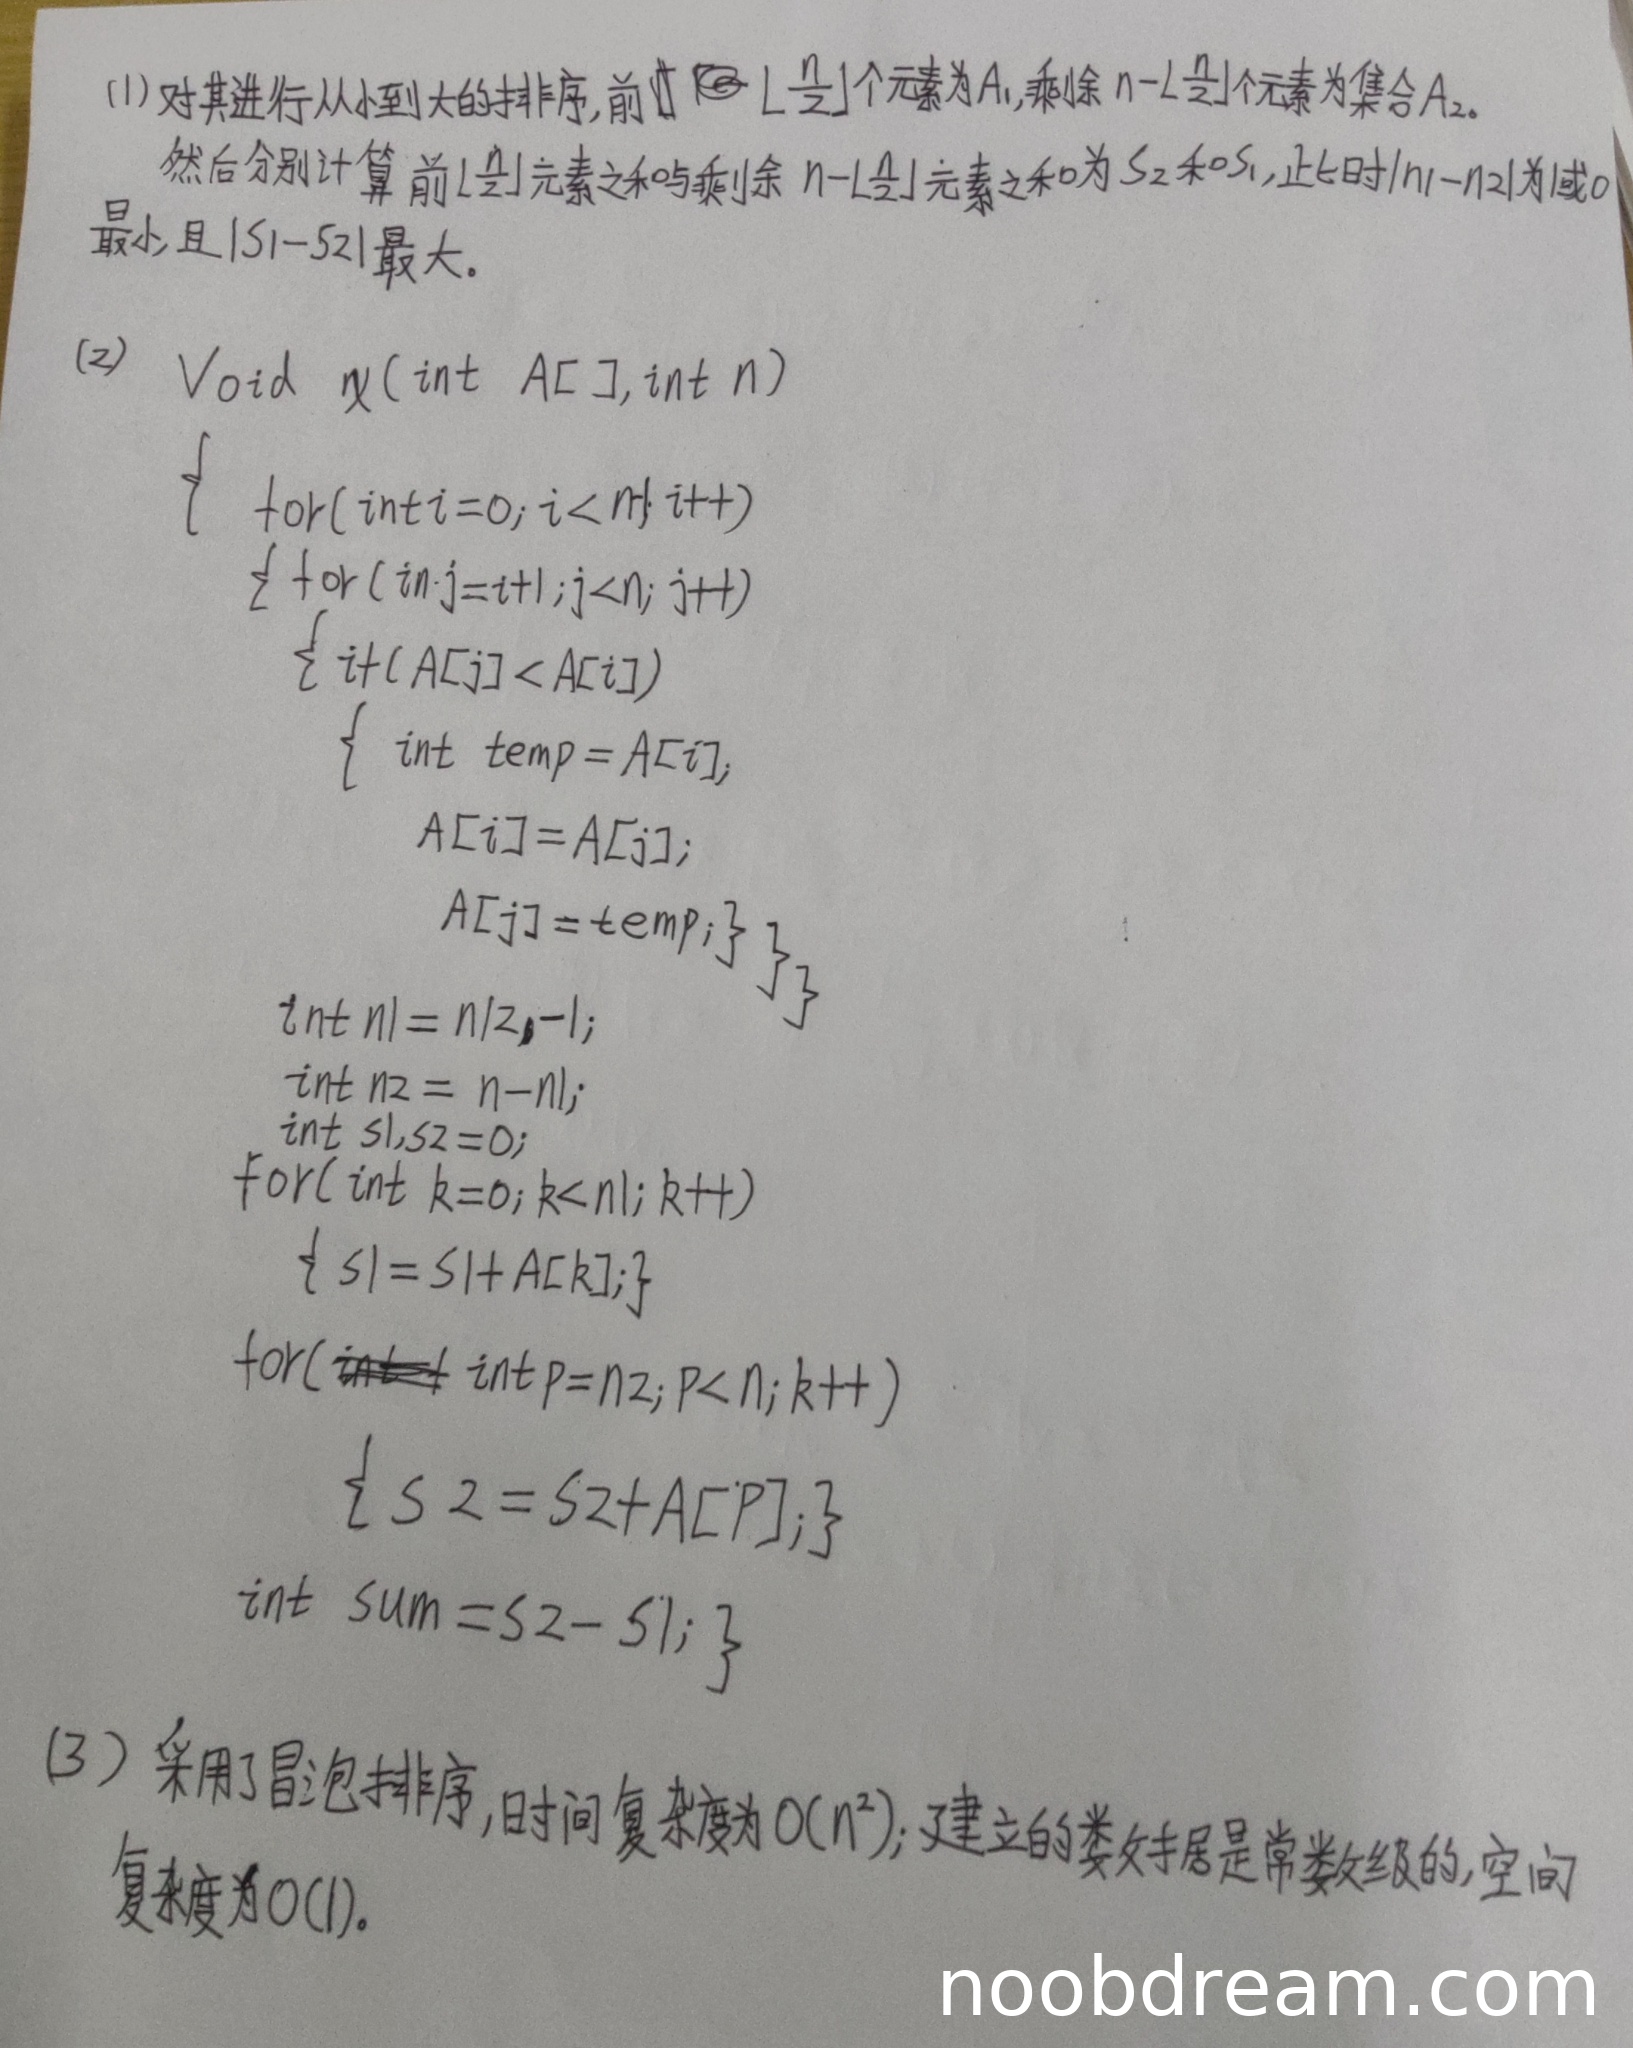 (1) 对其进行从小到大的排序,前 ⌊n/2⌋个元素为A₁,剩余 n-⌊n/2⌋个元素为集合A₂。
然后分别计算 前⌊n/2⌋元素之和与剩余 n-⌊n/2⌋元素之和为S₂和S₁,此时|n1-n2|为1或0
最小,且|S1-S2|最大。
(2) Void (int A[ ],int n)
{ for(int i=0; i<n-1; i++)
{ for(in j=i+1;j<n; j++)
{ if(A[j]<A[i])
{ int temp=A[i];
A[i]=A[j];
A[j]=temp;}}}
int n1=n/2-1;
int n2= n-n1;
int s1,s2=0;
for(int k=0; k<n1; k++)
{ s1=s1+A[k];}
for( int p=n2; p<n; k++)
{ s2=s2+A[P];}
int sum=s2-s1; }
(3) 采用了冒泡排序,时间复杂度为O(n²); 建立的数据是常数级的,空间
复杂度为O(1)。
noobdream.com